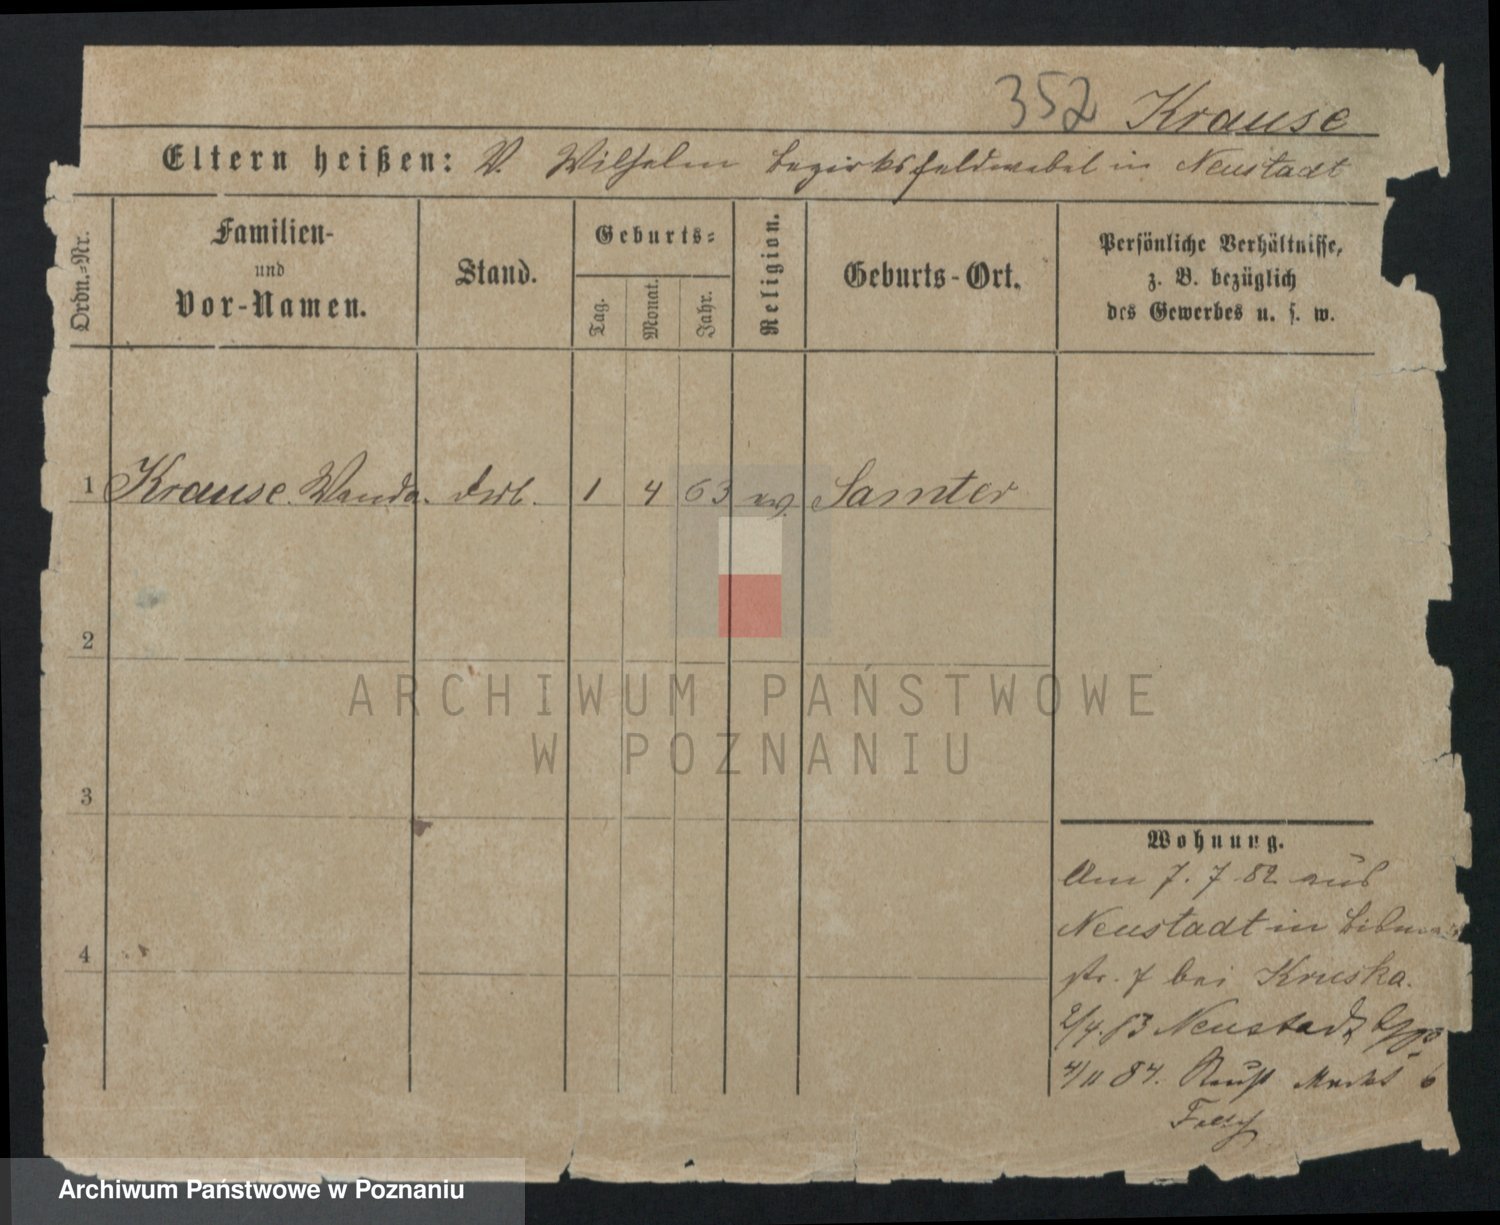 352 Krause
Eltern heißen: V. Wilhelm Bezirksfeldwebel in Neustadt
Ordn.-Nr.
Familien-
und
Vor-Namen.
Stand.
Geburts-
Tag.
Monat.
Jahr.
Religion.
Geburts-Ort.
Persönliche Verhältnisse,
z. B. bezüglich
des Gewerbes u. s. w.
1 Krause Wanda. 1 4 63 Samter
2
3
4
Wohnung.
Am 7. 7 82 aus
Neustadt in
str. 7 bei Kruska.
2/4. 83 Neustadt
4/11 84. Markt 6
ARCHIWUM PAŃSTWOWE
W POZNANIU
Archiwum Państwowe w Poznaniu